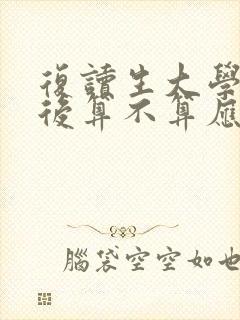 復讀生大學
後算不算應
腦袋空空如也